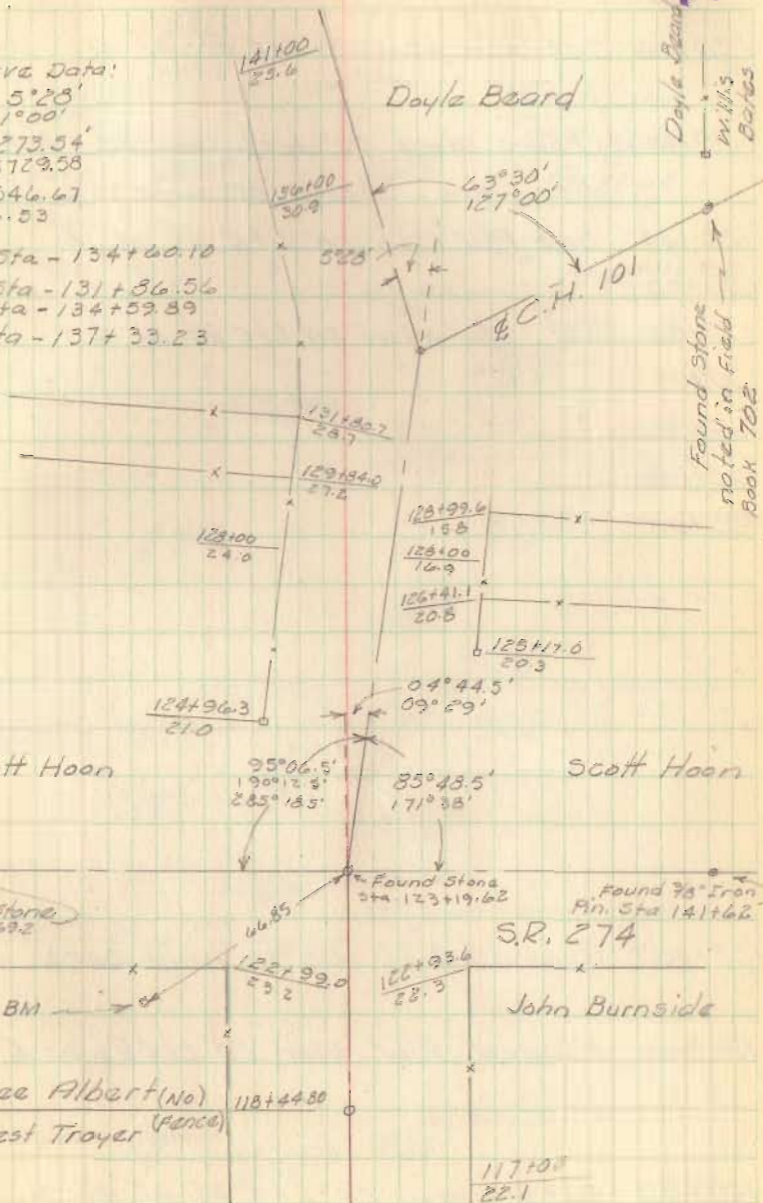 Doyle Beard
Willis
Bates
ve Data:
5°28'
1°00'
273.54'
5729.58
546.67
.53
Sta - 134+60.10
Sta - 131+86.56
ta - 134+59.89
ta - 137+33.23
141+00
25.6
Doyle Beard
136+00
30.9
63°30'
127°00'
5°28'
℄ C.H. 101
Found Stone
noted in Field
Book 702
131+80.7
28.7
129+84.0
27.2
128+00
24.0
128+99.6
15.8
128+00
16.9
126+41.1
20.8
125+17.0
20.3
124+96.3
21.0
04°44.5'
09°29'
95°06.5'
190°12.5'
285°18.5'
85°48.5'
171°38'
tt Hoon
Scott Hoon
Found Stone
Sta 123+19.62
Found 7/8" Iron
Pin. Sta 141+62
Stone
69.2
66.85
S.R. 274
122+99.0
23.2
122+93.6
22.3
BM
John Burnside
ee Albert (No)
118+44.80
est Troyer (Fence)
117+0
22.1